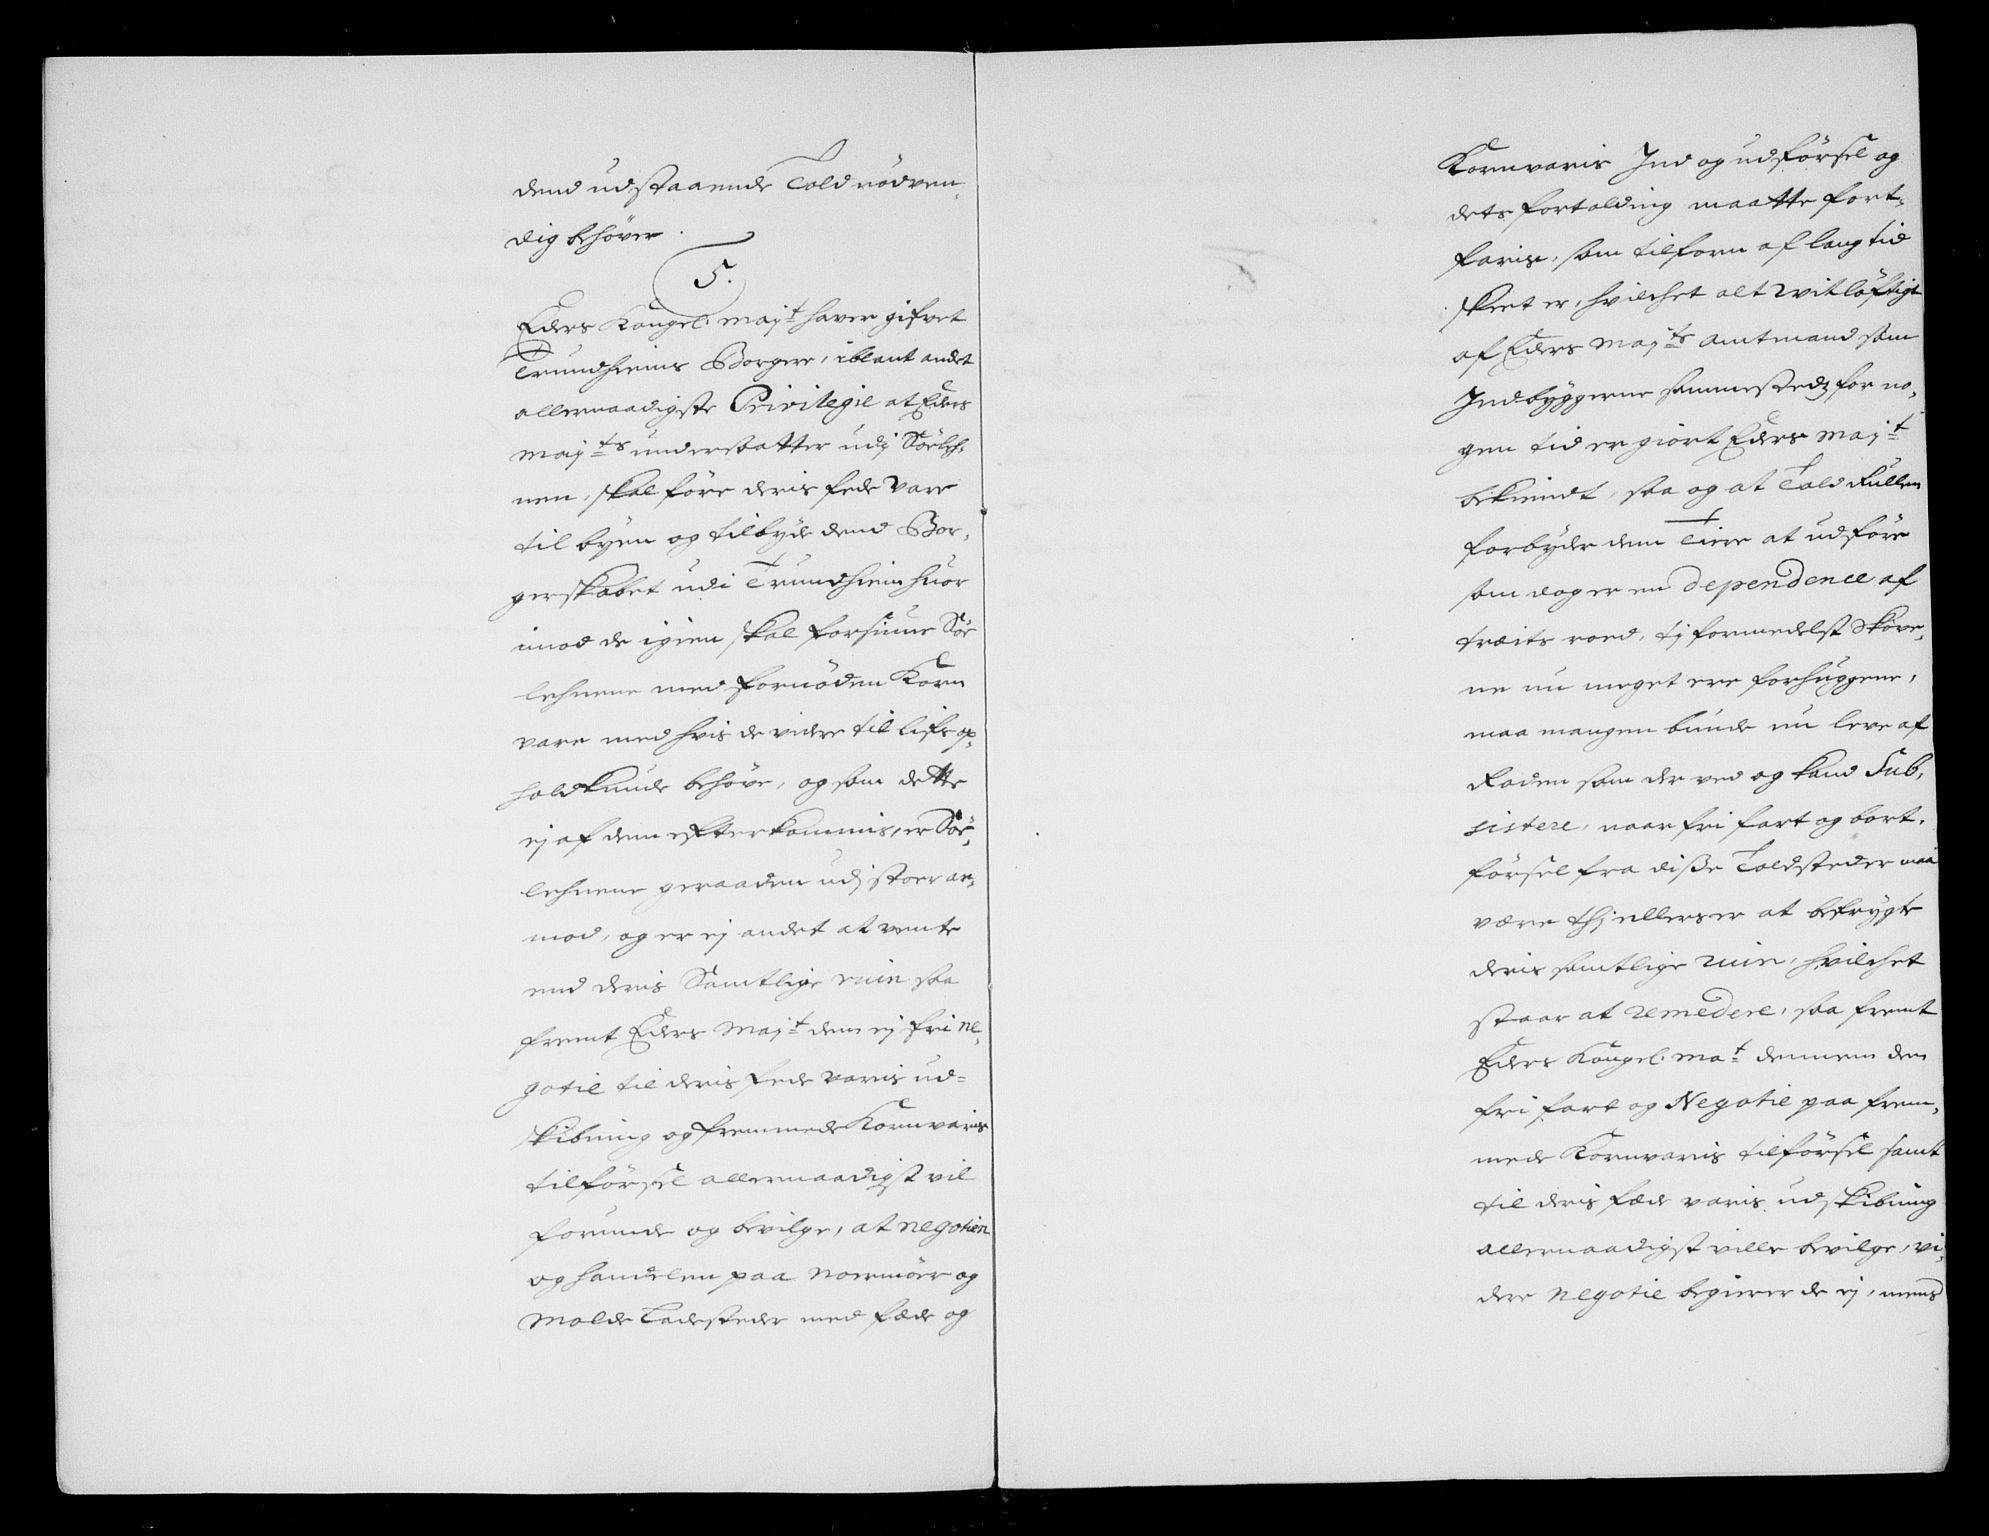 dend udstaaende Told nödven-
dig behöver.
5.
Eders Kongel. Maj:t haver gifvet
Trundhiems Borgere, iblant andet
allernaadigste Privilegie at Eders
Maj:ts undersaatter udj Söeleh-
nen, skal före deris fede vare
til byen og tilbyde dend Bor-
gerskabet udi Trundhiem huor
imod de igien skal forsiune Söe
lehnene med fornöden Korn
vare med hvis de videre til lifs op-
hold kunde behöve, og som dette
ej af dem efterkommis, er Söe-
lehnene geraaden udj stoer ar-
mod, og er ej andet at vente
end deris Samtlige ruin saa
fremt Eders Maj:t dem ej fri ne-
gotie til deris fede varis ud-
skibning og fremmede Kornvaris
tilförsel allernaadigst vil
forunde og bevilge, at negotien
og handelen paa Normöer og
Molde Ladesteder med fæde og
Kornvaris Ind og udförsel og
dets fortolding maatte fort-
faris, som tilforn af lang tid
skeet er, hvilchet alt vitlöftigt
af Eders Maj:ts Amtmand som
Indbyggerne sammestedz for no-
gen tid er giort Eders Maj:t
bekiendt, saa og at Told Rullen
forbyder dem Tiere at udföre
som dog er en dependence af
træets roed, tj formedelst Skove-
ne nu meget ere forhuggene,
maa mangen bunde nu leve af
Roden som der ved og kand Sub-
sistere, naar fri fart og bort-
försel fra disse Toldsteder maa
være thj ellers er at befrygte
deris samtlige ruin, hvilchet
staar at remedere, saa fremt
Eders Kongel. Ma:t dennem den
fri fart og Negotie paa frem-
mede Kornvaris tilförsel samt
til deris fæde varis udskibning
allernaadigst ville bevilge, vi-
dere negotie begierer de ej, mens